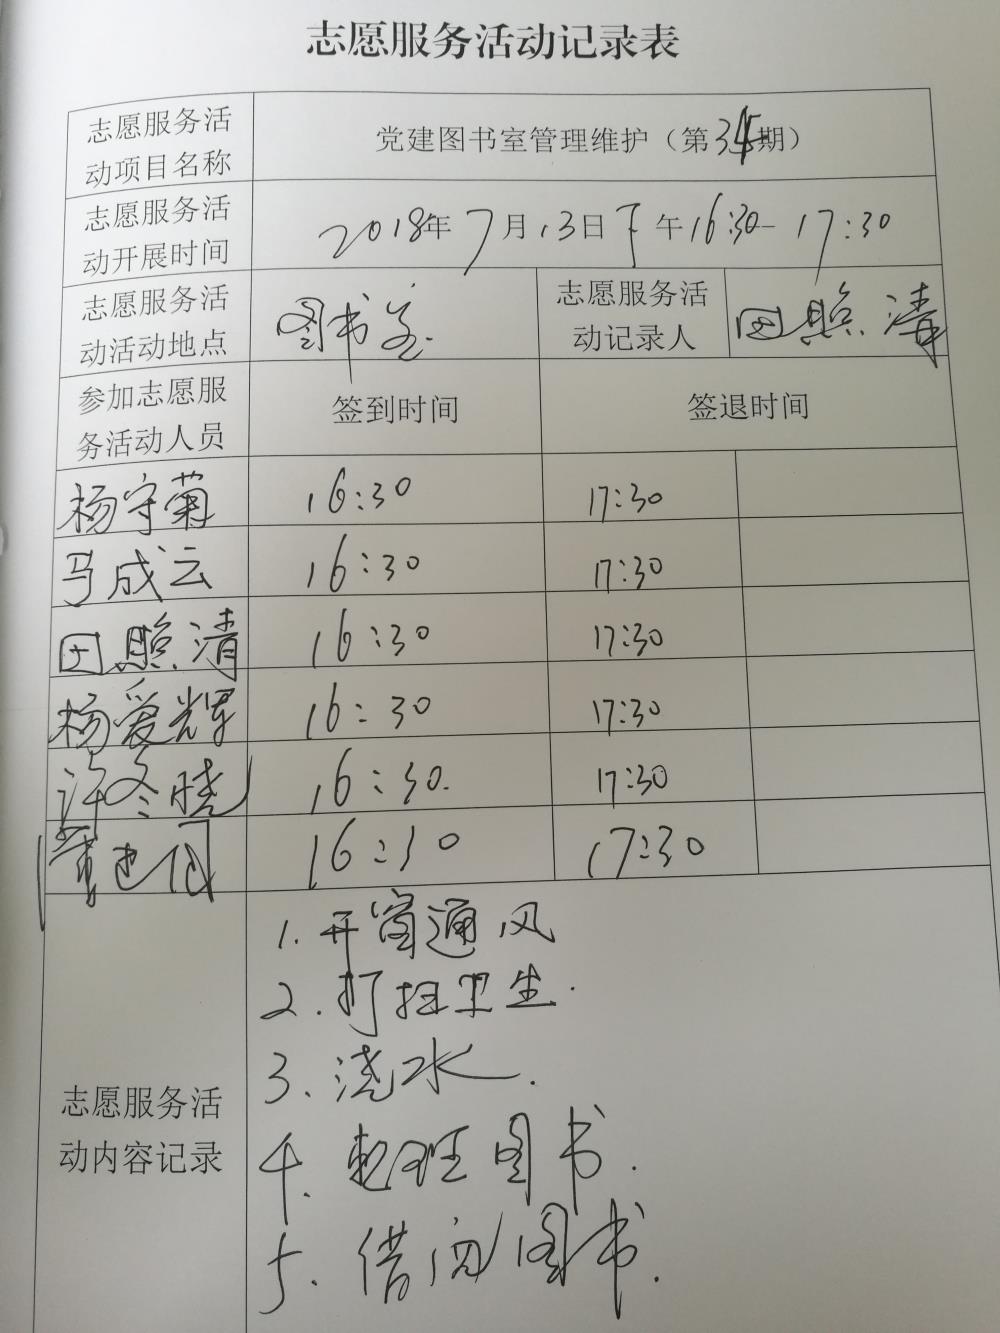 志愿服务活动记录表
志愿服务活
动项目名称
党建图书室管理维护（第期）
志愿服务活
动开展时间
2018年7月13日下午16:30-17:30
志愿服务活
动活动地点
图书室
志愿服务活
动记录人
田照清
参加志愿服
务活动人员
签到时间
签退时间
杨守菊 16:30 17:30
马成云 16:30 17:30
田照清 16:30 17:30
杨爱辉 16:30 17:30
许冬晓 16:30 17:30
16:30 17:30
志愿服务活
动内容记录
1.开窗通风
2.打扫卫生.
3、浇水.
4.整理图书.
5.借阅图书.